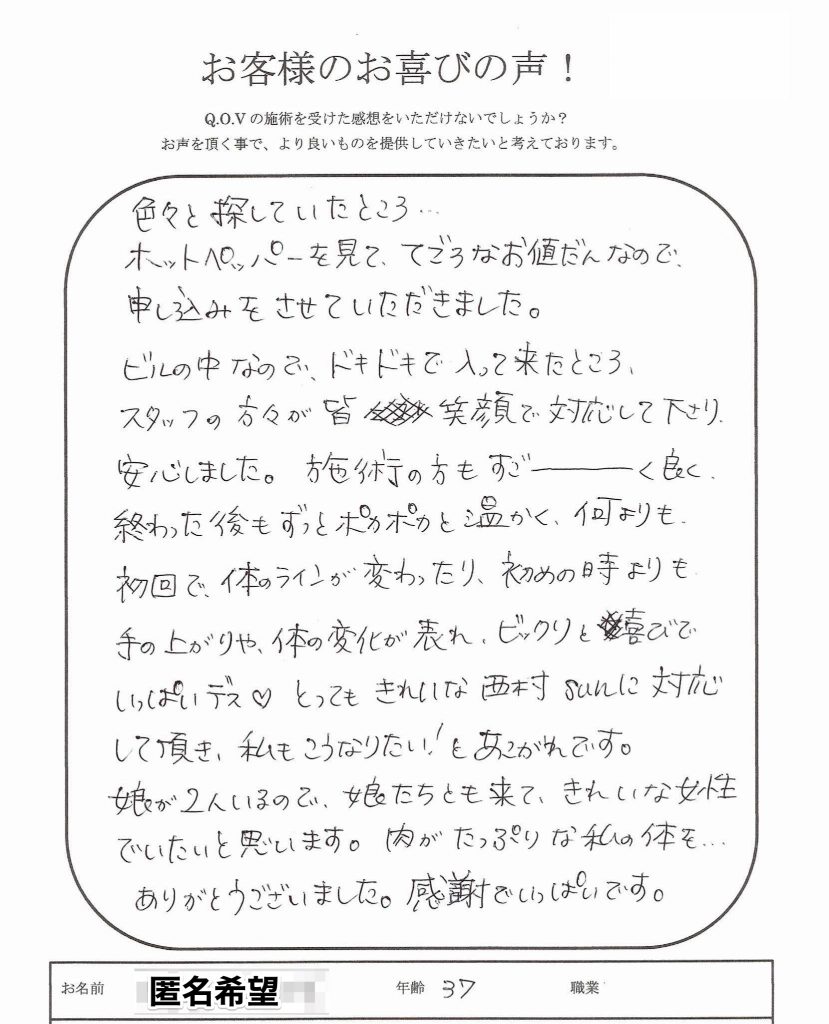 お客様のお喜びの声！
Q.O.Vの施術を受けた感想をいただけないでしょうか？
お声を頂く事で、より良いものを提供していきたいと考えております。
色々と探していたところ…
ホットペッパーを見て、てごろなお値だんなので、
申し込みをさせていただきました。
ビルの中なので、ドキドキで入って来たところ、
スタッフの方々が皆笑顔で対応して下さり、
安心しました。施術の方もすごーーーく良く、
終わった後もずっとポカポカと温かく、何よりも、
初回で、体のラインが変わったり、初めの時よりも
手の上がりや、体の変化が表れ、ビックリと喜びで
いっぱいデス♡ とってもきれいな西村sunに対応
して頂き、私もこうなりたい！とあこがれです。
娘が2人いるので、娘たちとも来て、きれいな女性
でいたいと思います。肉がたっぷりな私の体を…
ありがとうございました。感謝でいっぱいです。
お名前 匿名希望 年齢 37 職業